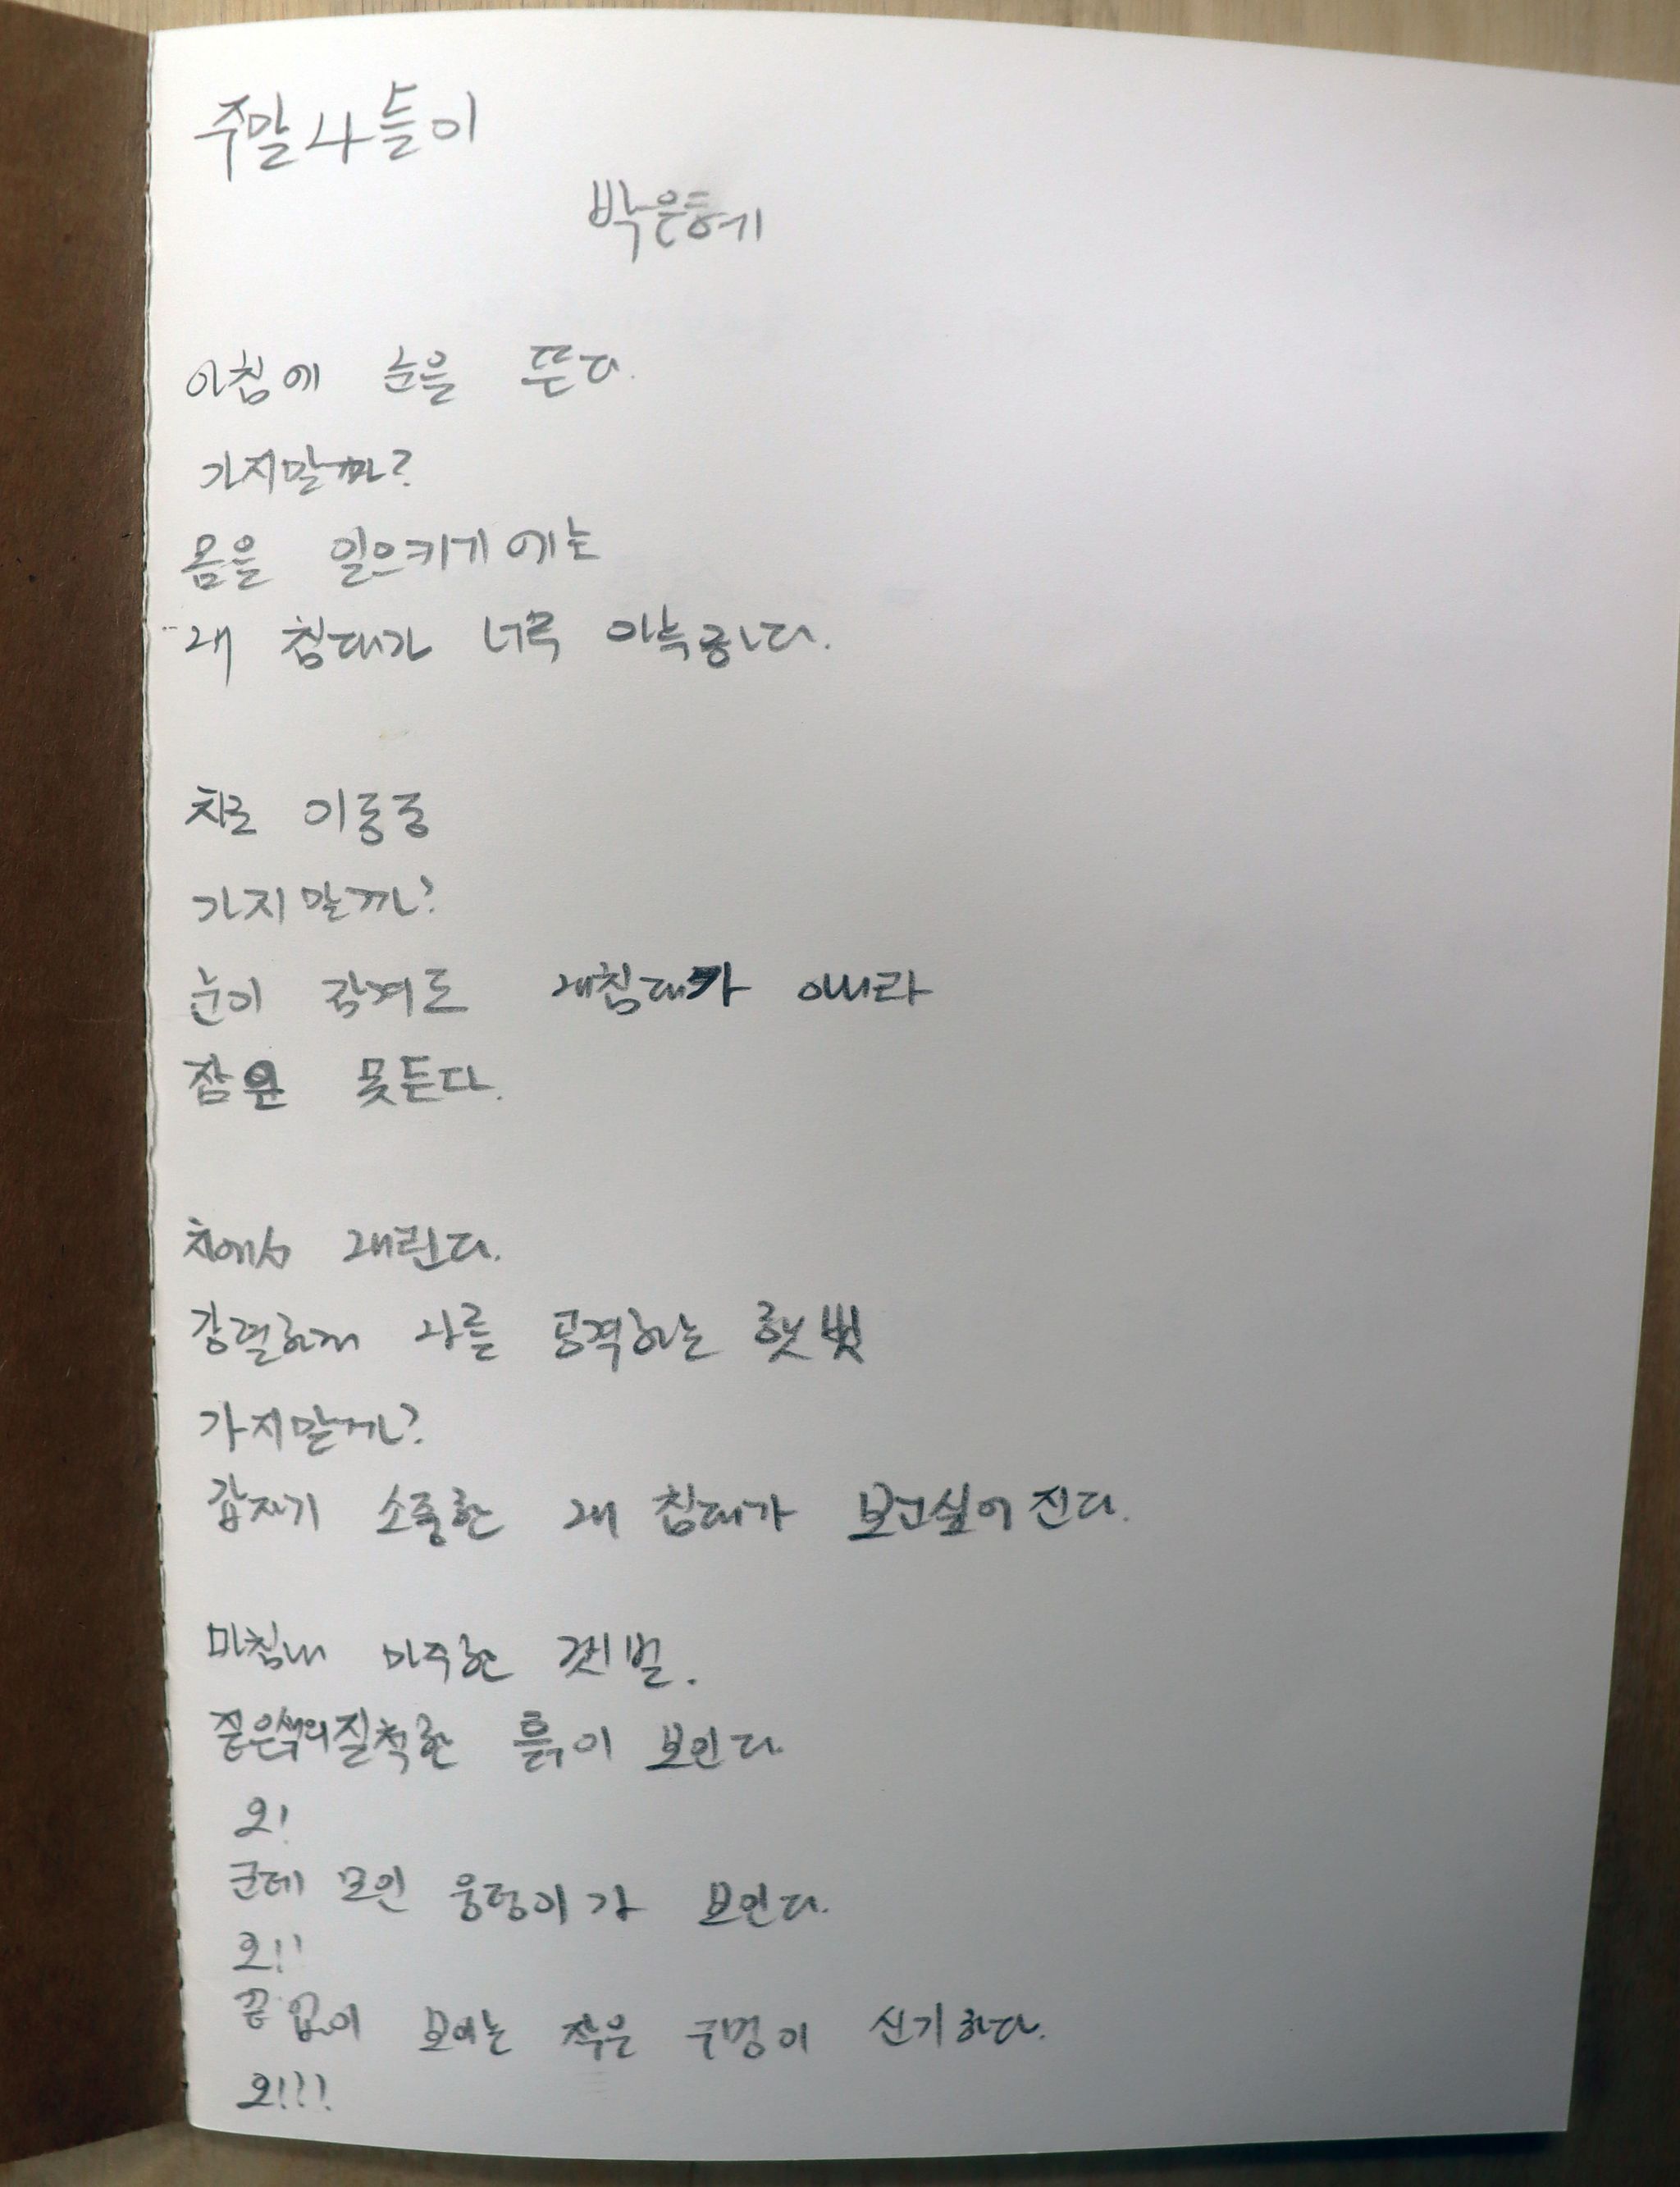 주말 나들이
아침에 눈을 뜬다.
가지말까?
몸을 일으키기에는
내 침대가 너무 아늑하다.
차로 이동중
가지말까?
눈이 감겨도 내침대가 아니라
잠은 못든다.
차에서 내린다.
강렬하게 나를 공격하는 햇빛
가지말까?
갑자기 소중한 내 침대가 보고싶어 진다.
마침내 마주한 갯벌.
짙은색의 질척한 흙이 보인다
오!
군데 모인 웅덩이가 보인다.
오!!
끝없이 보이는 작은 구멍이 신기하다.
오!!!